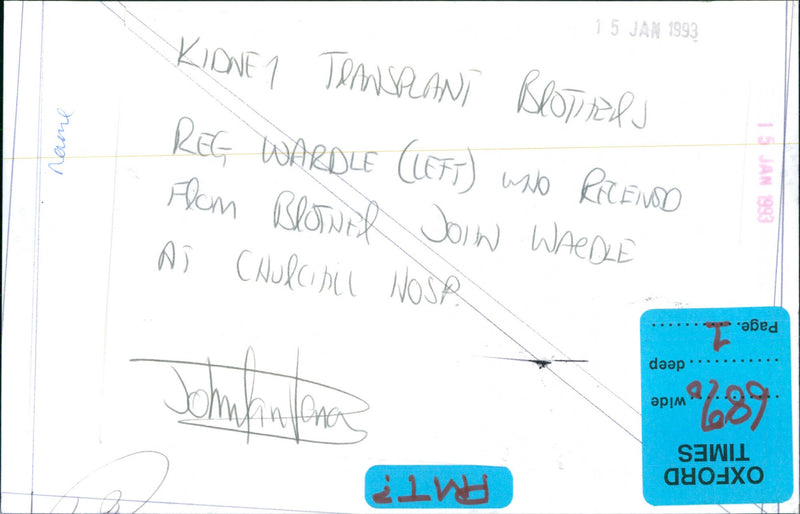 15 JAN 1993
KIDNEY TRANSPLANT BROTHERS
REG WARDLE (LEFT) WHO RECEIVED
FROM BROTHER JOHN WARDLE
AT CHURCHILL HOSP.
name
15 JAN 1993
OXFORD
TIMES
68% wide
deep
Page. 1